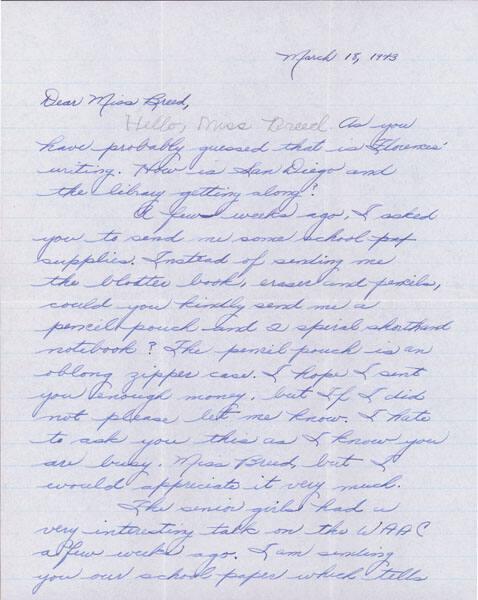 March 18, 1943
Dear Miss Breed,
Hello, Miss Breed As you
have probably guessed that is Florences'
writing. How is San Diego and
the library getting along?
A few weeks ago, I asked
you to send me some school pap
supplies. Instead of sending me
the blotter book, eraser and pencils,
could you kindly send me a
pencil pouch and 2 spiral shorthand
notebook? The pencil pouch is an
oblong zipper case. I hope I sent
you enough money, but If I did
not please let me know. I hate
to ask you this as I know you
are busy, Miss Breed, but I
would appreciate it very much.
The senior girls had a
very interesting talk on the WAAC
a few weeks ago. I am sending
you our school paper which tells